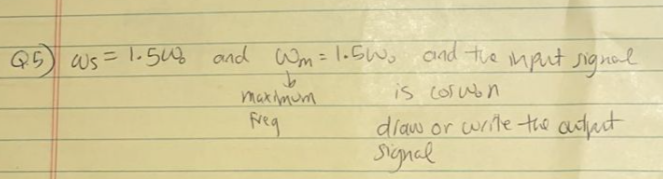 Q5) ωs = 1.5ω₀ and ωm = 1.5ω₀ and the input signal
maximum is cosω₀n
freq draw or write the output
signal